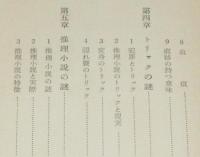 8 血痕
9 直感の持つ意味
第四章 トリックの謎
1 犯罪とトリック
2 推理小説のトリックと現実
3 変身のトリック
4 隠れ簑のトリック
第五章 推理小説の謎
1 推理小説の謎
2 推理小説と実際
3 推理小説の特徴